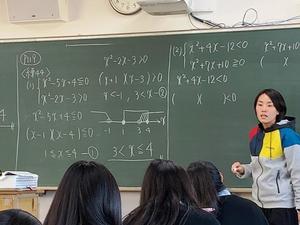 P119
(1) { x²-5x+4≦0
x²-2x-3>0
x²-5x+4≦0
(x-1)(x-4)≦0
1≦x≦4-①
x²-2x-3>0
(x+1)(x-3)>0
x<-1, 3<x-②
-1 1 3 4 x
3<x≦4
(2) { x²+4x-12<0
x²+7x+10≧0
x²+4x-12<0
( )( )<0
x²+7x+10
(